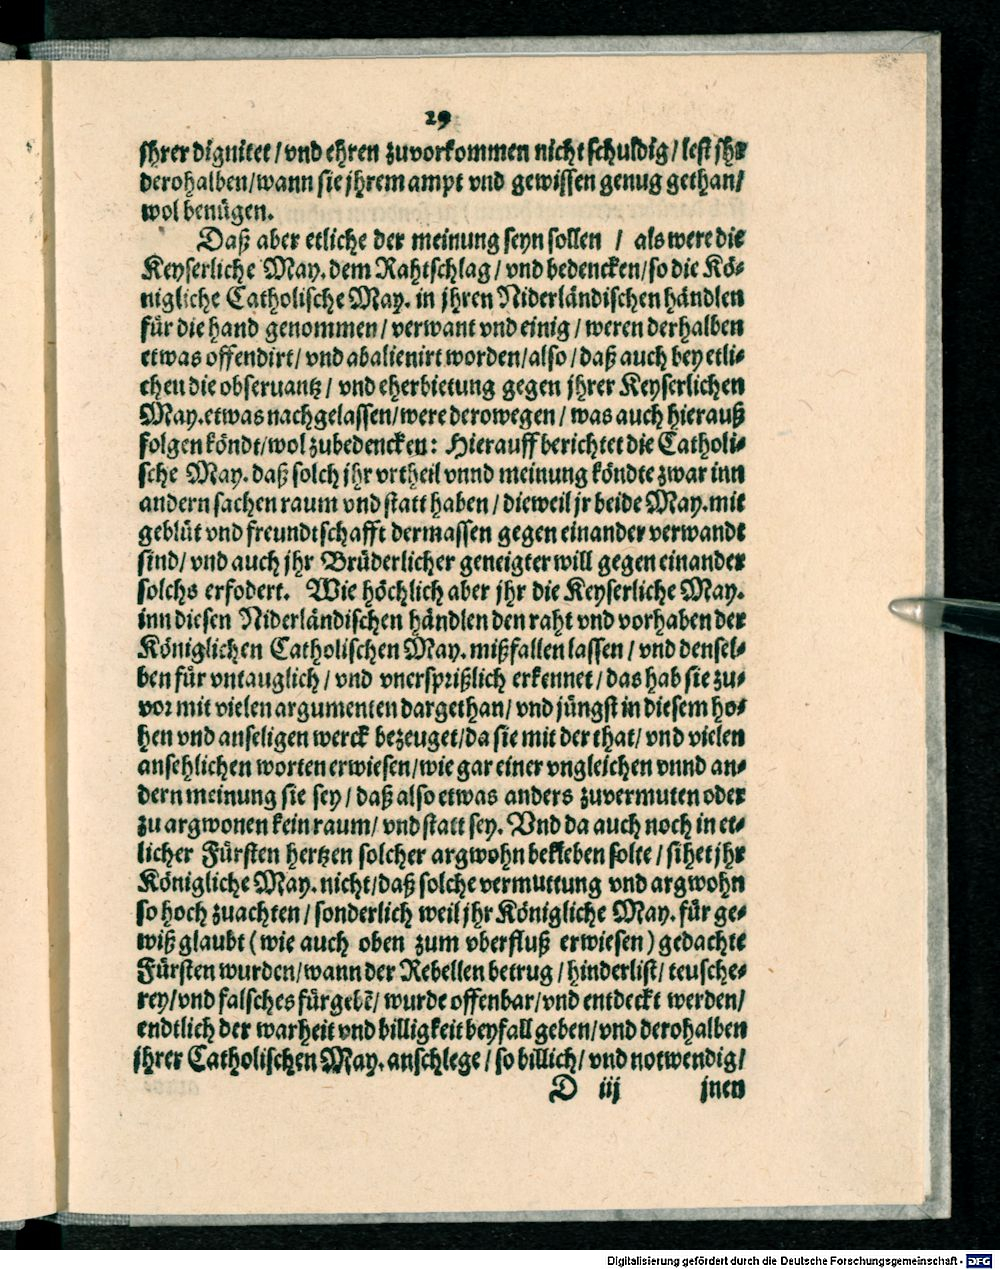 29
jhrer dignitet / vnd ehren zuvorkommen nicht schuldig / lest jhr
derohalben / wann sie jhrem ampt vnd gewissen genug gethan /
wol benügen.
Daß aber etliche der meinung seyn sollen / als were die
Keyserliche May. dem Rahtschlag / vnd bedencken / so die Kö⸗
nigliche Catholische May. in jhren Niderländischen händlen
für die hand genommen / verwant vnd einig / weren derhalben
etwas offendirt / vnd abalienirt worden / also / daß auch bey etli⸗
chen die obseruantz / vnd eherbietung gegen jhrer Keyserlichen
May. etwas nachgelassen / were derowegen / was auch hierauß
folgen köndt / wol zubedencken: Hierauff berichtet die Catholi⸗
sche May. daß solch jhr vrtheil vnnd meinung köndte zwar inn
andern sachen raum vnd statt haben / dieweil jr beide May. mit
geblüt vnd freundtschafft dermassen gegen einander verwandt
sind / vnd auch jhr Brüderlicher geneigter will gegen einander
solchs erfodert. Wie höchlich aber jhr die Keyserliche May.
inn diesen Niderländischen händlen den raht vnd vorhaben der
Königlichen Catholischen May. mißfallen lassen / vnd densel⸗
ben für vntauglich / vnd vnersprißlich erkennet / das hab sie zu⸗
vor mit vielen argumenten dargethan / vnd jüngst in diesem ho⸗
hen vnd anseligen werck bezeuget / da sie mit der that / vnd vielen
ansehlichen worten erwiesen / wie gar einer vngleichen vnnd an⸗
dern meinung sie sey / daß also etwas anders zuvermuten oder
zu argwonen kein raum / vnd statt sey. Vnd da auch noch in et⸗
licher Fürsten hertzen solcher argwohn bekleben solte / sihet jhr
Königliche May. nicht / daß solche vermuttung vnd argwohn
so hoch zuachten / sonderlich weil jhr Königliche May. für ge⸗
wiß glaubt (wie auch oben zum vberfluß erwiesen) gedachte
Fürsten wurden / wann der Rebellen betrug / hinderlist / teusche⸗
rey / vnd falsches fürgebẽ / wurde offenbar / vnd entdeckt werden /
endtlich der warheit vnd billigkeit beyfall geben / vnd derohalben
jhrer Catholischen May. anschlege / so billich / vnd notwendig /
D iij jnen
Digitalisierung gefördert durch die Deutsche Forschungsgemeinschaft - DFG